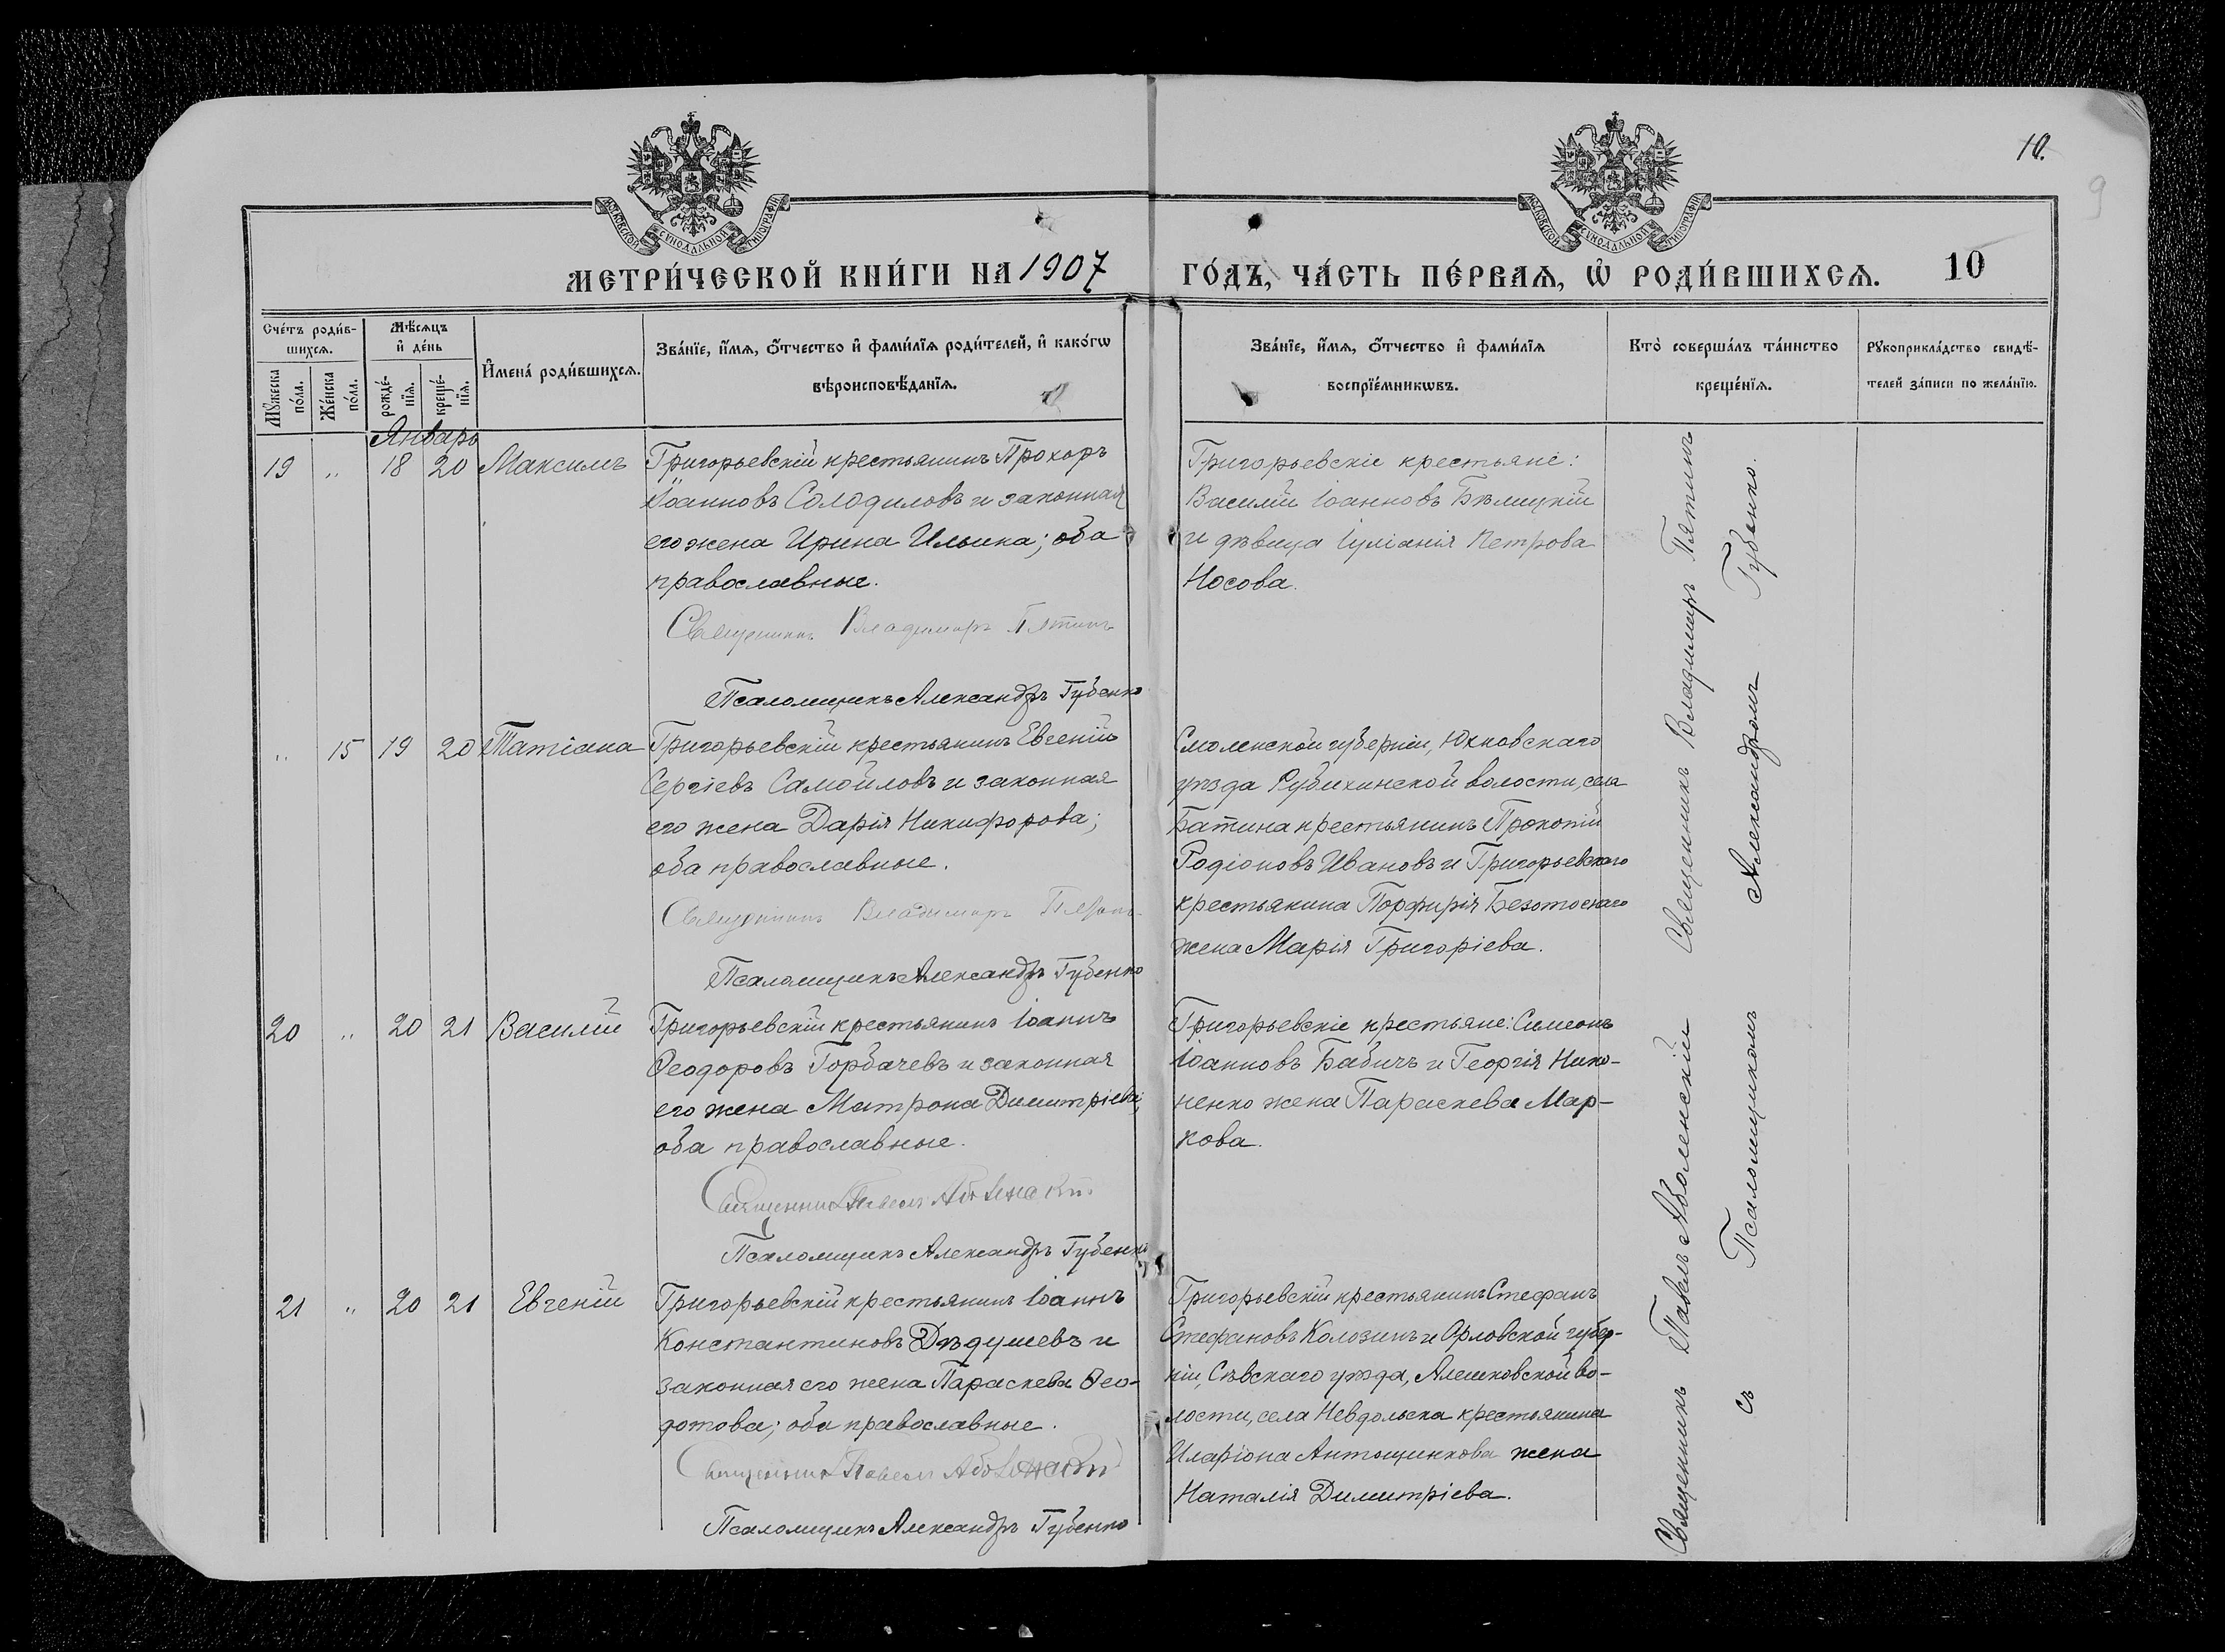 10.
9
МОСКОВСКОЙ СѴНОДАЛЬНОЙ ТИПОГРАФІИ
МОСКОВСКОЙ СѴНОДАЛЬНОЙ ТИПОГРАФІИ
МЕТРИ́ЧЕСКОЙ КНИ́ГИ НА 1907
ГО́ДЪ, ЧА́СТЬ ПЕ́РВАѦ, Ѡ҆ РОДИ́ВШИХСѦ. 10
Сче́тъ роди́в-
шихсѧ.
Мꙋ́жеска
по́ла.
Же́нска
по́ла.
Мѣ́сѧцъ
и҆ де́нь
рожде́-
нїѧ.
креще́-
нїѧ.
И҆мена̀ роди́вшихсѧ.
Зва́нїе, и҆́мѧ, ѻ҆́тчество и҆ фами́лїѧ роди́телей, и҆ како́гѡ
вѣроисповѣ́данїѧ.
Зва́нїе, и҆́мѧ, ѻ҆́тчество и҆ фами́лїѧ
воспрїе́мникѡвъ.
Кто̀ соверша́лъ та́инство
креще́нїѧ.
Рꙋкоприкла́дство свидѣ́-
телей за́писи по жела́нїю.
Январь
19 „ 18 20 Максимъ
Григорьевскій крестьянинъ Прохоръ
Іоанновъ Солодиловъ и законная
его жена Ирина Ильина; оба
православные.
Священникъ Владимиръ Пятинъ
Псаломщикъ Александръ Губенко
Григорьевскіе крестьяне:
Василій Іоанновъ Бѣлицкій
и дѣвица Іуліанія Петрова
Носова.
„ 15 19 20 Татіана
Григорьевскій крестьянинъ Евгеній
Сергіевъ Самойловъ и законная
его жена Дарія Никифорова;
оба православные.
Священникъ Владимиръ Пятинъ
Псаломщикъ Александръ Губенко
Смоленской губерніи, Юхновскаго
уѣзда Рубихинской волости, села
Батина крестьянинъ Прокопій
Родіоновъ Ивановъ и Григорьевскаго
крестьянина Порфирія Безотоснаго
жена Марія Григоріева.
20 „ 20 21 Василій
Григорьевскій крестьянинъ Іоаннъ
Ѳеодоровъ Горбачевъ и законная
его жена Матрона Димитріева;
оба православные.
Священникъ Павелъ Аболенскій
Псаломщикъ Александръ Губенко
Григорьевскіе крестьяне: Симеонъ
Іоанновъ Бабичъ и Георгія Нико-
ненко жена Параскева Мар-
кова.
21 „ 20 21 Евгеній
Григорьевскій крестьянинъ Іоаннъ
Константиновъ Дѣдушевъ и
законная его жена Параскева Ѳео-
дотова; оба православные.
Священникъ Павелъ Аболенскій
Псаломщикъ Александръ Губенко
Григорьевскій крестьянинъ Стефанъ
Стефановъ Колозинъ и Орловской губер-
ніи, Сѣвскаго уѣзда, Алешковской во-
лости, села Невдольска крестьянина
Иларіона Антощенкова жена
Наталія Димитріева.
Священникъ Павелъ Аболенскій Священникъ Владимиръ Пятинъ
съ Псаломщикомъ Александромъ Губенко.